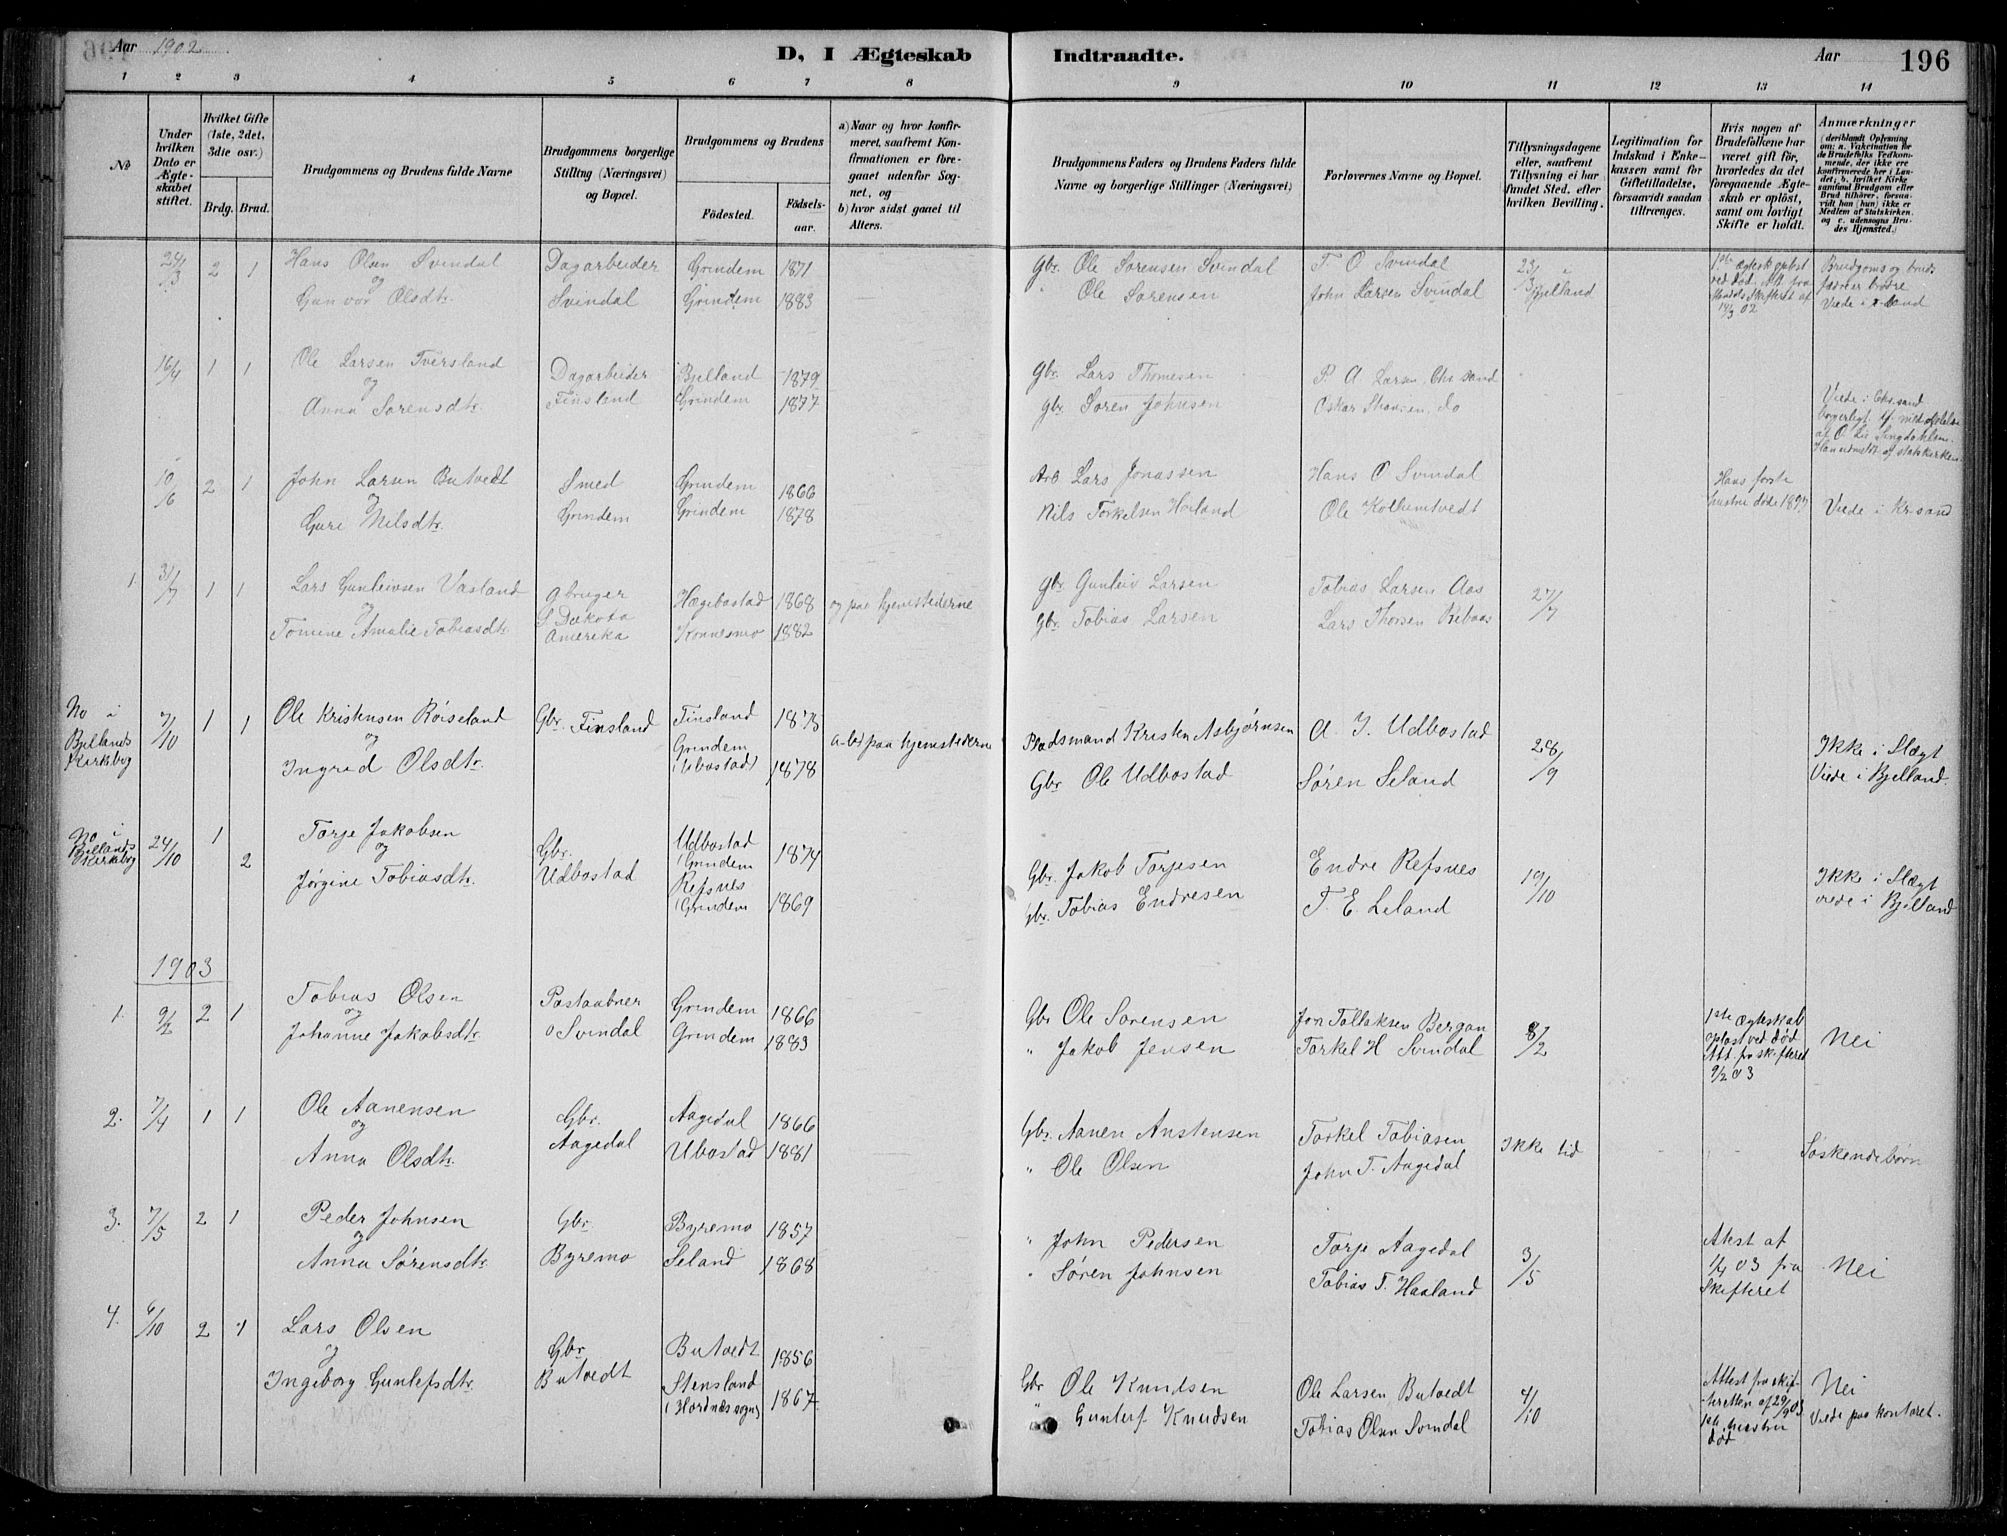 Aar 1902
D, I Ægteskab Indtraadte.
Aar 196
1 2 3 4 5 6 7 8 9 10 11 12 13 14
No
Under hvilken Dato er Ægteskabet stiftet.
Hvilket Gifte (1ste, 2det, 3die osv.)
Brdg. Brud.
Brudgommens og Brudens fulde Navne
Brudgommens borgerlige Stilling (Næringsvei) og Bopæl.
Brudgommens og Brudens
Födested. Födselsaar.
a) Naar og hvor konfirmeret, saafremt Konfirmationen er foregaaet udenfor Sognet, og
b) hvor sidst gaaet til Alters.
Brudgommens Faders og Brudens Faders fulde Navne og borgerlige Stillinger (Næringsvei)
Forlovernes Navne og Bopæl.
Tillysningsdagene eller, saafremt Tillysning ei har fundet Sted, efter hvilken Bevilling.
Legitimation for Indskud i Enkekassen samt for Giftetilladelse, forsaavidt saadan tiltrænges.
Hvis nogen af Brudefolkene har været gift för, hvorledes da det foregaaende Ægteskab er oplöst, samt om lovligt Skifte er holdt.
Anmærkninger
(deriblandt Oplysning om: a. Vakcination for de Brudefolks Vedkommende, der ikke ere konfirmerede her i Landet; b. hvilket Kirkesamfund Brudgom eller Brud tilhører, forsaavidt han (hun) ikke er Medlem af Statskirken, og c. udensogns Brudes Hjemsted.)
24/3 2 1 Hans Olsen Svindal Dagarbeider Grindem 1871 Gbr. Ole Sorensen Svindal T. O. Svindal 23/3 i Bjelland 1ste Ægtesk. opløst ved død. Brudgoms og bruds
og
Gunvor Olsdtr. Svindal Grindem 1883 " Ole Sorensen John Larsen Svindal fædre er brødre
14/3 02
16/4 1 1 Ole Larsen Tversland Dagarbeider Bjelland 1879 Gbr. Lars Thomesen P. A. Larsen, Chr sand
og
Anna Sorensdtr. Finsland Grindem 1877 Gbr. Soren Johnsen Oskar do Viede i Chr. sand
borgerligt
af statskirken.
10/6 2 1 John Larsen Butvedt Smed Grindem 1866 Arb Lars Jonassen Hans O Svindal Hans første
og
Guri Nilsdtr. Grindem Grindem 1878 Nils Torkelsen Hoiland Ole hustru døde Viede i Kr. sand
1. 31/7 1 1 Lars Gunleivsen Vasland Gbruger Hægebostad 1868 og paa hjemstederne Gbr. Gunleiv Larsen Tobias Larsen Aas 27/7
og S Dakota
Tomine Amalie Tobiasdtr. Amerika Konnesmo 1882 Gbr. Tobias Larsen Lars Thorsen
No i Bjellands Kirkebog 7/10 1 1 Ole Kristensen Röiseland Gbr. Finsland Finsland 1873 a-b paa hjemstederne Pladsmand Kristen Asbjørnsen A. I. Udbostad 28/9 Ikke i Slægt
og
Ingrid Olsdtr. Grindem (Ubostad) 1878 Gbr Ole Udbostad Søren Seland Viede i Bjelland.
No i Bjellands Kirkebog 24/10 1 Torje Jakobsen Gbr. Udbostad i Grindem 1874 Gbr. Jakob Torjesen Endre Refsnes 19/10 Ikke i Slægt
og
2 Jørgine Tobiasdtr. Udbostad Refsnes i Grindem 1869 Gbr. Tobias Endresen T. E. Leland viede i Bjelland
1903
1. 9/2 2 1 Tobias Olsen Postaabner Grindem 1866 Gbr Ole Sorensen Jon Tollaksen Bergan 8/2 1ste Ægteskab opløst ved død Nei
og
Johanne Jakobsdtr. o Svindal Grindem 1883 " Jakob Jensen Torkel H Svindal Att fra skifteret 9/2 03
2. 7/4 1 1 Ole Aanensen Gbr. Aagedal 1866 Gbr. Aanen Anstensen Torkel Tobiasen Ikke tid
og
Anna Olsdtr. Aagedal Ubostad 1881 " Ole Olsen John T. Aagedal Søskendebørn
3. 7/5 2 1 Peder Johnsen Gbr. Byremo 1857 " John Pedersen Torje Aagedal 3/5 Atest af
og
Anna Sørensdtr. Byremo Seland 1868 " Søren Johnsen Tobias T. Haaland 1/4 03 fra Skifteret Nei
4. 6/10 2 1 Lars Olsen Gbr Butvedt 1856 Gbr Ole Knudsen Ole Larsen Butvedt 4/10 Attest fra skifteretten af 29/9 03 Nei
og
Ingeborg Gunlefsdtr. Butvedt Stensland i Hordnes sogn 1867 " Gunlef Knudsen Tobias Olsen Svindal 1ste hustru død Viede paa kontoret.